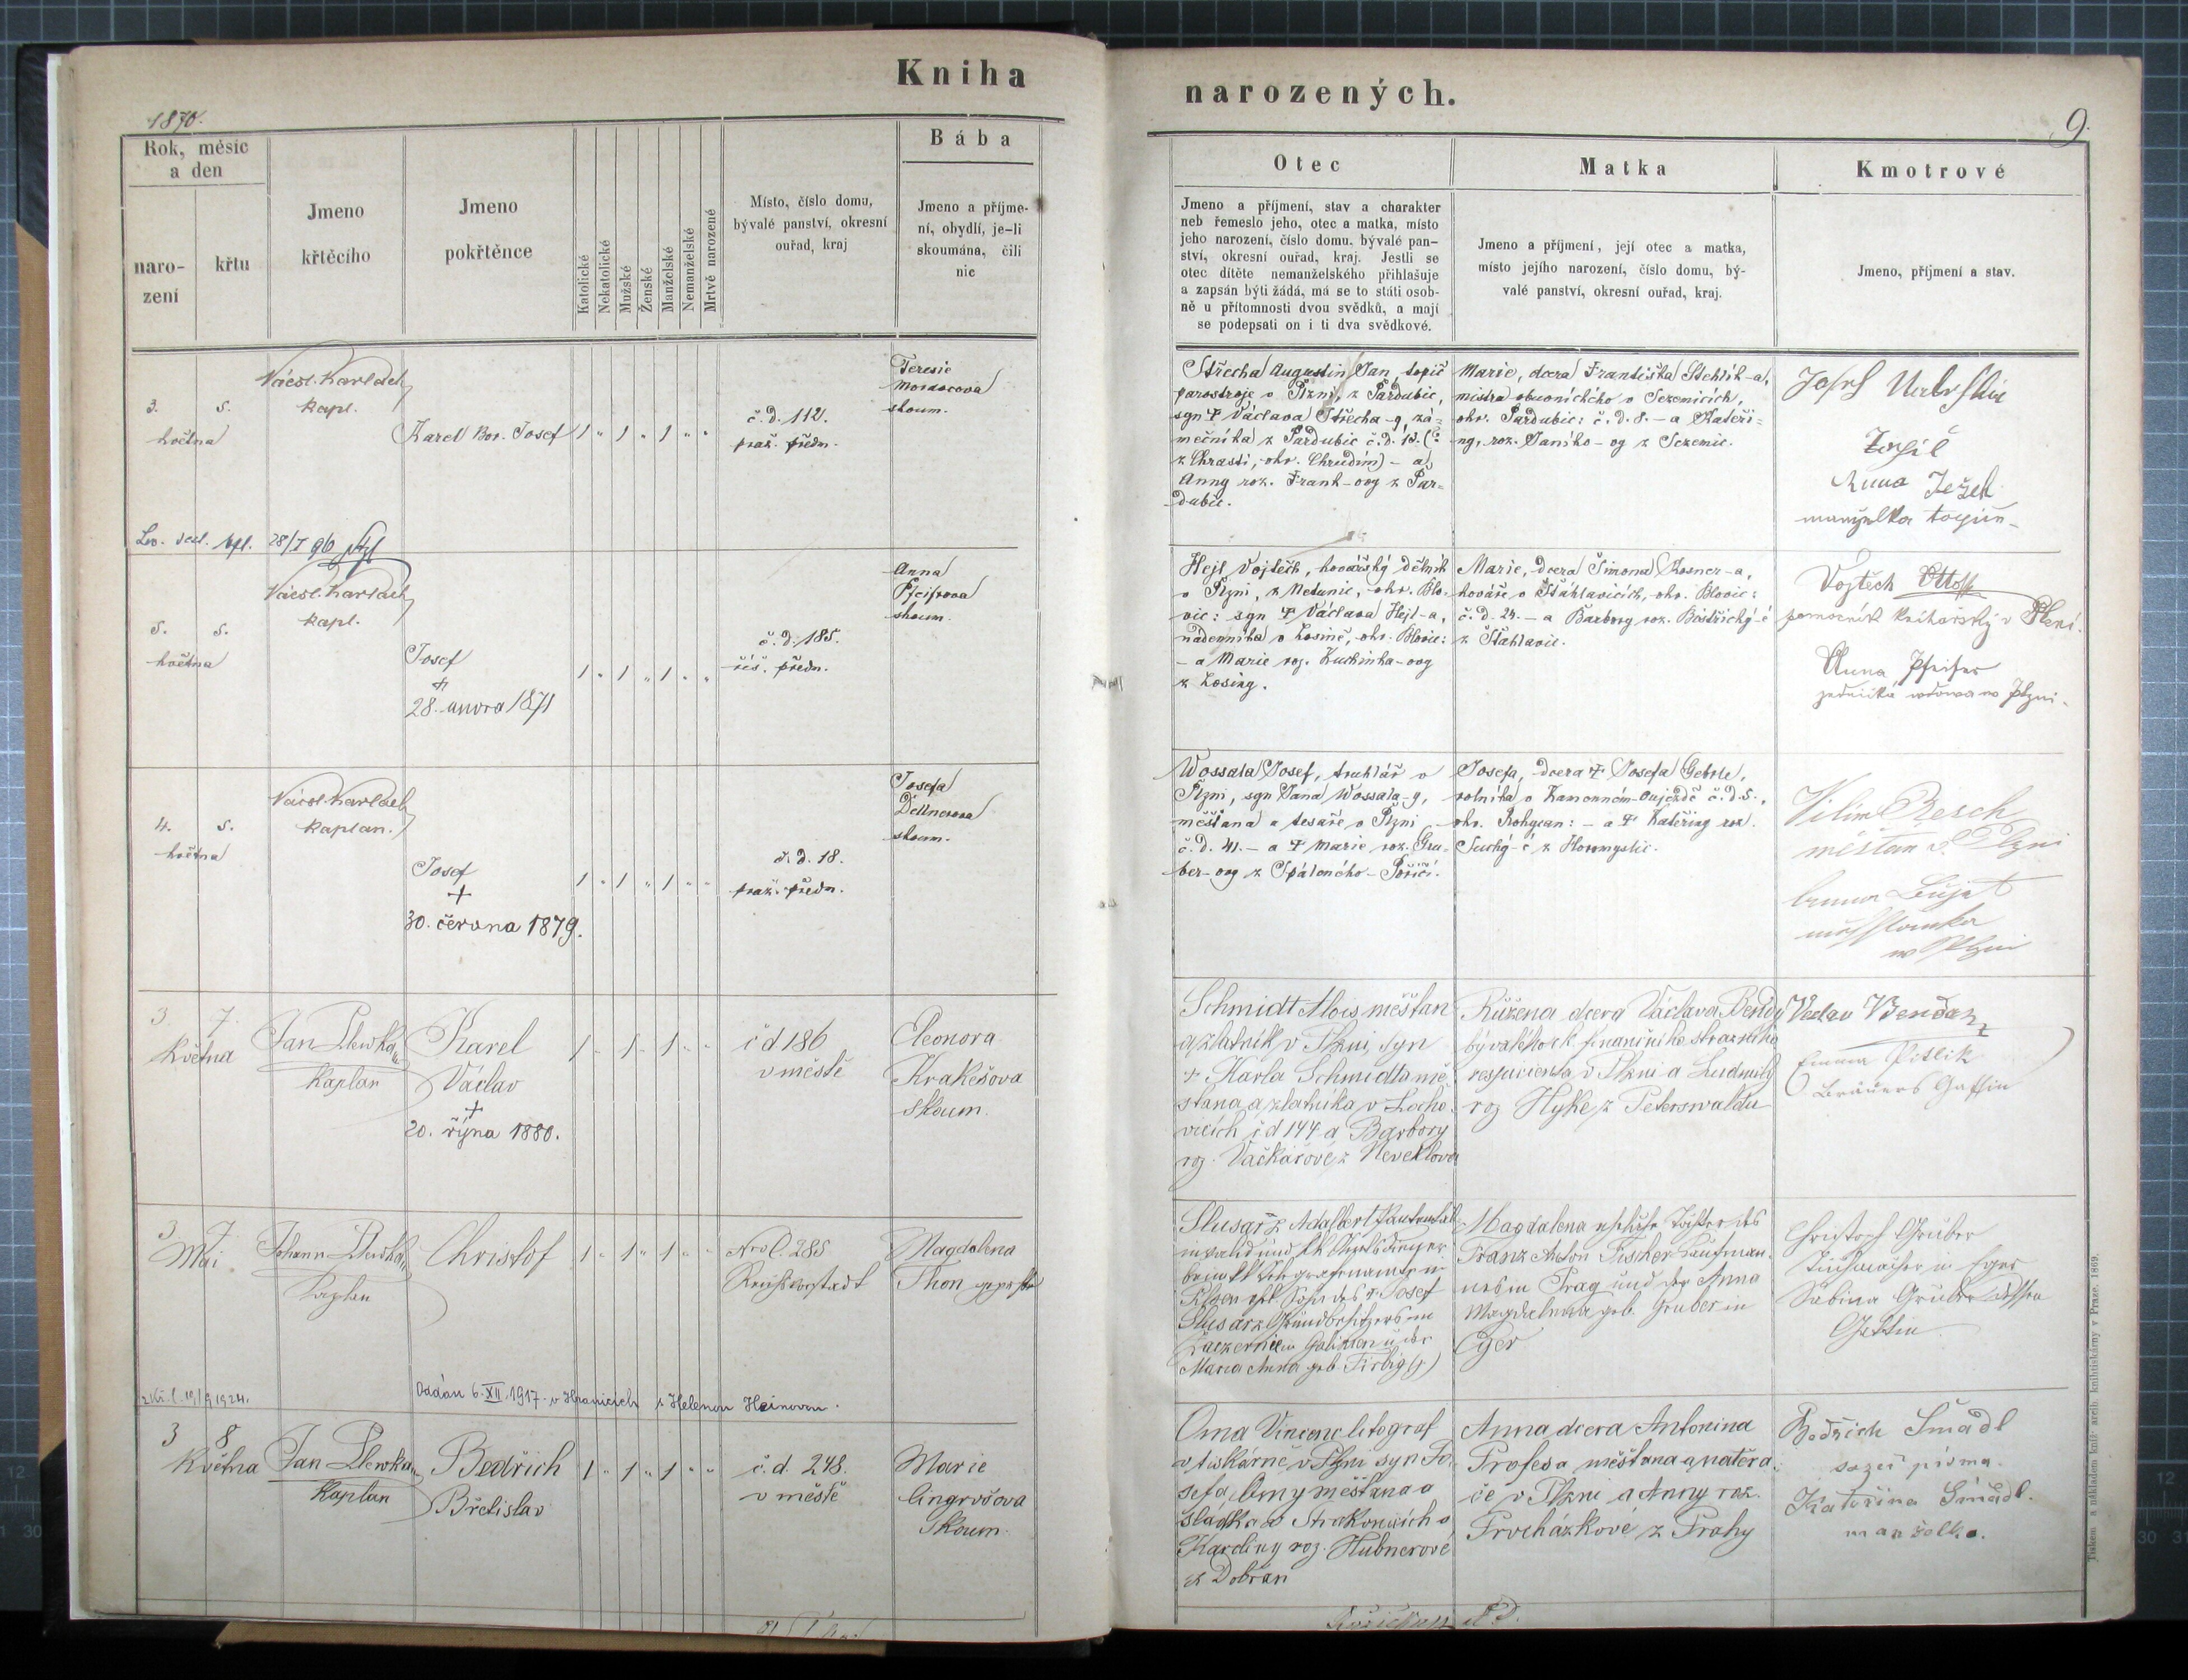 Kniha
narozených.
1870.
9.
Rok, měsíc
a den
naro-
zení
křtu
Jmeno
křtěcího
Jmeno
pokřtěnce
Katolické
Nekatolické
Mužské
Ženské
Manželské
Nemanželské
Mrtvě narozené
Místo, číslo domu,
bývalé panství, okresní
ouřad, kraj
Bába
Jmeno a příjme-
ní, obydlí, je-li
skoumána, čili
nic
Otec
Jmeno a příjmení, stav a charakter
neb řemeslo jeho, otec a matka, místo
jeho narození, číslo domu, bývalé pan-
ství, okresní ouřad, kraj. Jestli se
otec dítěte nemanželského přihlašuje
a zapsán býti žádá, má se to státi osob-
ně u přítomnosti dvou svědků, a mají
se podepsati on i ti dva svědkové.
Matka
Jmeno a příjmení, její otec a matka,
místo jejího narození, číslo domu, bý-
valé panství, okresní ouřad, kraj.
Kmotrové
Jmeno, příjmení a stav.
3. 5.
května
Václ. Karlach
kapl.
Karel Bor. Josef
1 " 1 " 1 " "
č. d. 112.
praž. předm.
Teresie
skoum.
Střecha Augustin Jan, topič
parostroje v Plzni, z Pardubic,
syn † Václava Střecha-y, zá-
mečníka z Pardubic č. d. 13. (:
z Chrasti, okr. Chrudim) - a
Anny roz. Frank-ovy z Par-
dubic.
Marie, dcera Františka Stehlík-a,
mistra obuvnického v Sezemicích,
okr. Pardubic: č. d. 8. - a Kateři-
ny, roz. Janíko-vy z Sezemic.
Josef
Topič
Anna Ježek
manželka
28/I 96
5. 5.
května
Václ. Karlach
kapl.
Josef
†
28. února 1871
1 " 1 " 1 " "
č. d. 185.
říš. předm.
Anna
Pfeifrova
skoum.
Hejl Vojtěch, kovářský dělník
v Plzni, z Netunic, okr. Blo-
vic: syn † Václava Hejl-a,
nádenníka v Losině, okr. Blovic:
- a Marie roz. Kuchinka-ovy
z Losiny.
Marie, dcera Šimona Kosner-a,
kováře v Šťáhlavicích, okr. Blovic:
č. d. 24. - a Barbory roz. Bistřický-é
z Šťahlavic.
Vojtěch Ottoff
pomocník knihařský v Plzni.
Anna Pfeifer
4. 5.
května
Václ. Karlach
kaplan.
Josef
†
30. června 1879.
1 " 1 " 1 " "
č. d. 18.
praž. předm.
Josefa
skoum.
Wossala Josef, truhlář v
Plzni, syn Jana Wossala-y,
měšťana a tesaře v Plzni
č. d. 41. - a † Marie roz. Gru-
ber-ovy z Spáleného-Poříčí.
Josefa, dcera † Josefa Gebrle,
rolníka v Kamenném-Oujezdě č. d. 5.,
okr. Rokycan: - a † Kateřiny roz.
Suchý-é z Horomyslic.
Vilím Resch
měšťan v Plzni
3 7.
Května
Jan Plewka
Kaplan
Karel
Václav
†
20. října 1880.
1 " 1 " 1 " "
č d 186
v městě
Eleonora
Krakešova
Skoum.
Schmidt Alois měšťan
a zlatník v Plzni, syn
† Karla Schmidta mě-
stana a zlatníka v Locho-
vicích č d 144 a Barbory
roz. Vačkářové z Neveklova
Růžena dcera Václava Bendy
bývalého k. k. finančního strážního
respicienta v Plzni a Ludmily
roz Hyke z Peterswaldu
Emma Pitlik
Bräuers Gattin
3 7
Mai
Johann Plewka
Kaplan
Christof
1 " 1 " 1 " "
Nro C. 285
Reichsvorstadt
Magdalena
Thon geprüft
Josef
Maria Anna geb. Firbig (†)
Magdalena eheliche Tochter des
Franz Anton Fischer Kaufman-
nes in Prag und der Anna
Magdalena geb. Gruber in
Eger
Christoph Gruber
Tuchmacher in Eger
Sabina Gruber dessen
Gattin
Oddán 6. XII. 1917. v Hranicích s Helenou Heinovou.
3 8
Května
Jan Plewka
Kaplan
Bedřich
Břetislav
1 " 1 " 1 " "
č. d. 248.
v městě
Marie
Skoum.
Oma Vincenc litograf
v tiskárně v Plzni syn Jo-
sefa Omy měšťana a
sladka v Strakonicích a
Karoliny roz. Hubnerové
z Dobřan
Anna dcera Antonína
Profesa měšťana a natěra-
če v Plzni a Anny roz.
Procházkové z Prahy
Bedřich Šmadl
sazeč písma.
Kateřina Šmádl.
manželka.
Tiskem a nákladem kníž. arcib. knihtiskárny v Praze. 1869.